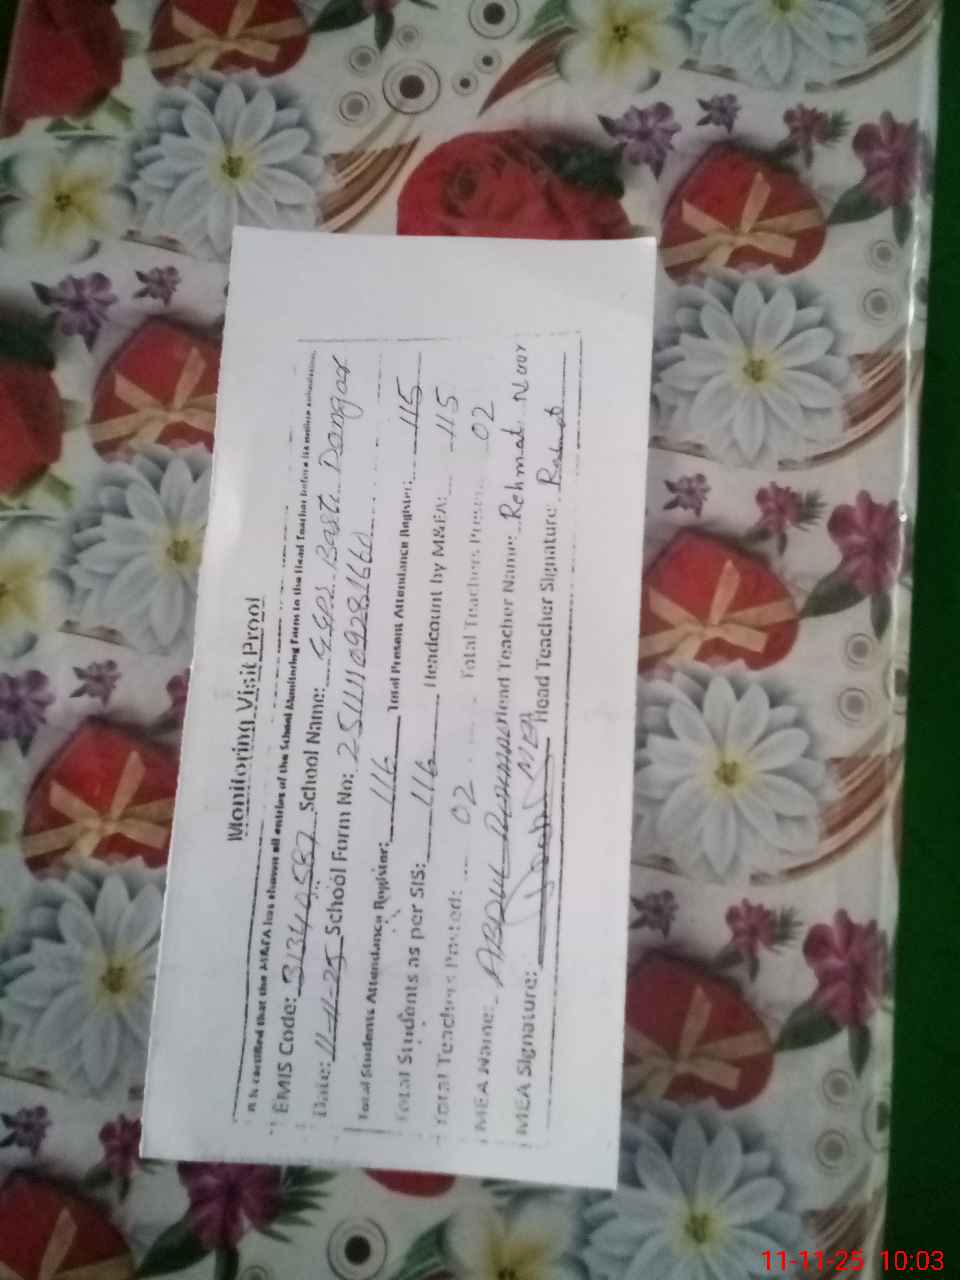 Monitoring Visit Proof
It is certified that the M&EA has shown all entries of the School Monitoring Form to the Head Teacher before its online submission.
EMIS Code: 31340587 School Name: GGPS Basti Dangar
Date: 11-11-25 School Form No:
Total Students Attendance Register: 116 Total Present Attendance Register: 115
Total Students as per SIS: 116 Headcount by M&EA: 115
Total Teachers Posted: 02 Total Teachers Present: 02
MEA Name: ABDUL Head Teacher Name: Rehmat Noor
MEA Signature: Head Teacher Signature:
11-11-25 10:03